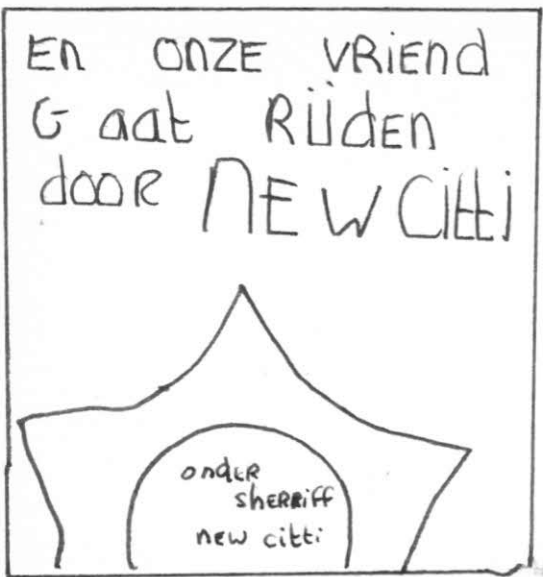 En onze vriend
Gaat Rijden
door NEW Citti
onder
sherriff
new citti